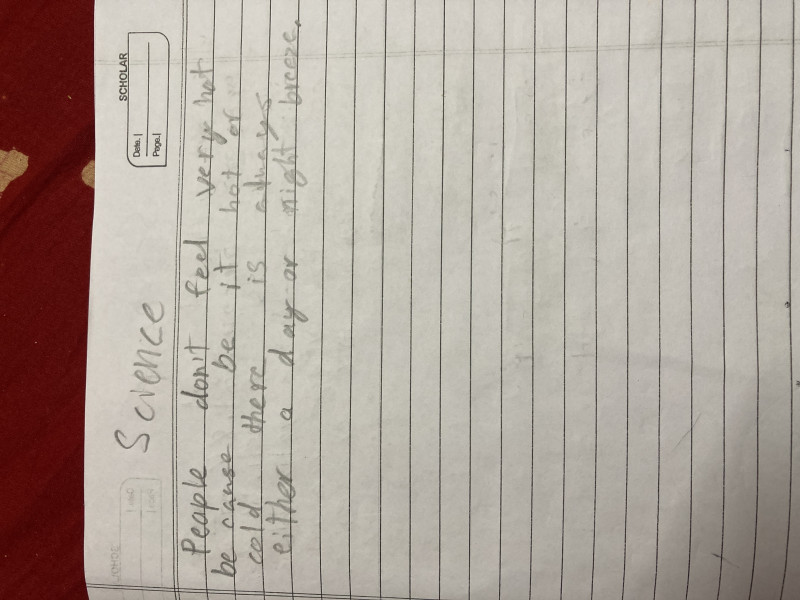 SCHOLAR
Date.
Page.
Science
Peaple don't feel very hot
be cause be it hot or
cold there is always
either a day or night breeze.